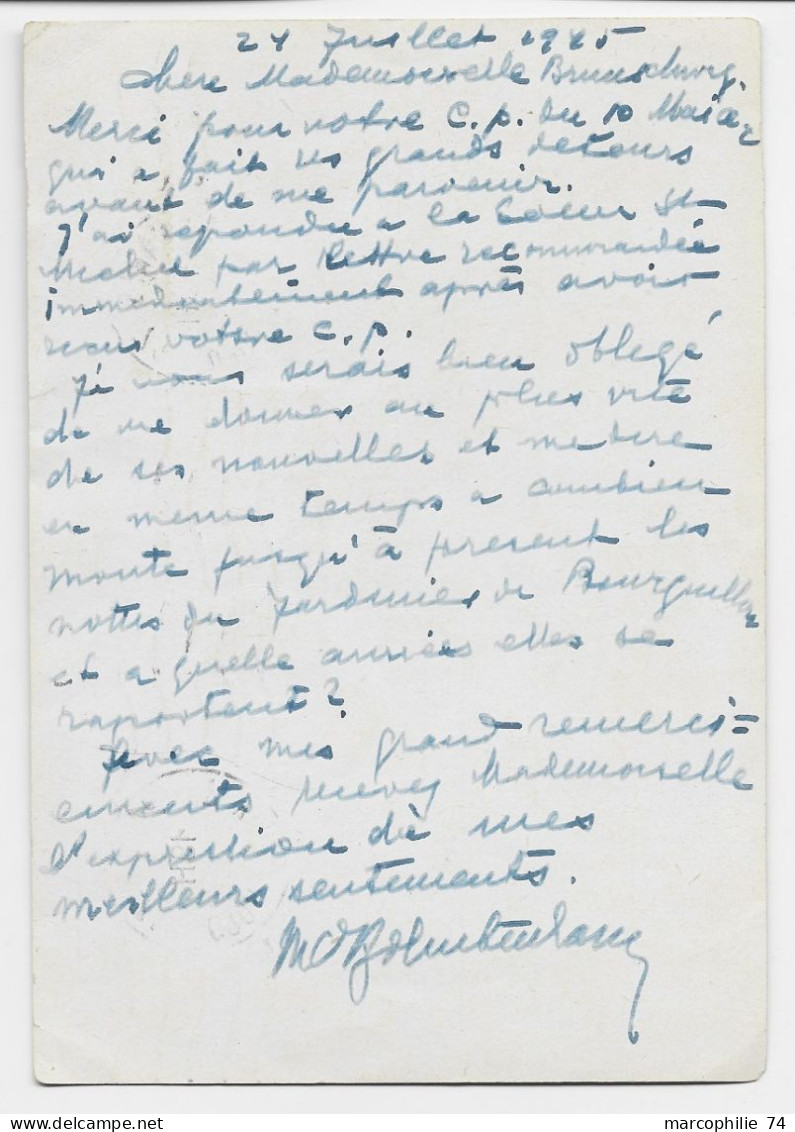 24 Juillet 1945
Chere Mademoiselle Brunschwig,
Merci pour votre C.p. du 10 Mai a.
qui a fait des grands detours
avant de me parvenir.
J'ai repondu a la Soeur St
par lettre recommandée
immediatement après avoir
recu votre C.p.
Je vous serais bien oblegé
de me donner au plus vite
de ses nouvelles et me dire
en meme temps a combien
monte jusqu'à present les
nottes du Jardinier de Bourguillon
et a quelle années elles se
raportent?
Avec mes grand remerci=
ements recevez Mademoiselle
l'expression de mes
meilleurs sentements.
marcophilie 74